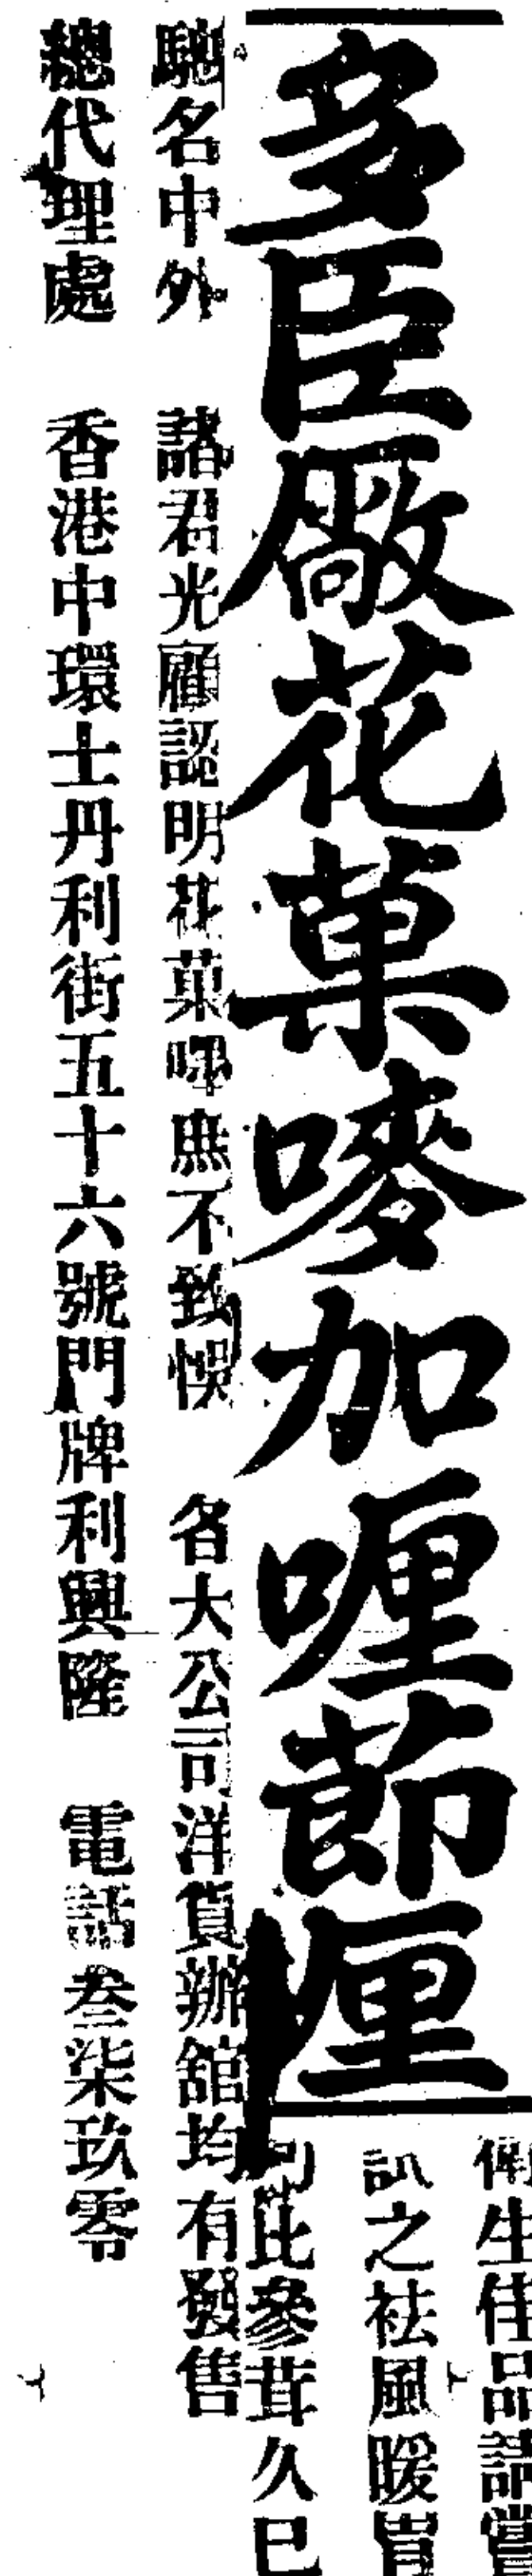 多臣廠花菓嘜加喱節厘
衛生佳品請嘗
試之祛風暖胃
比參茸久已
馳名中外 諸君光顧認明花菓嘜庶不致悞 各大公司洋貨辦舘均有發售
總代理處 香港中環士丹利街五十六號門牌利興隆 電話叁柒玖零